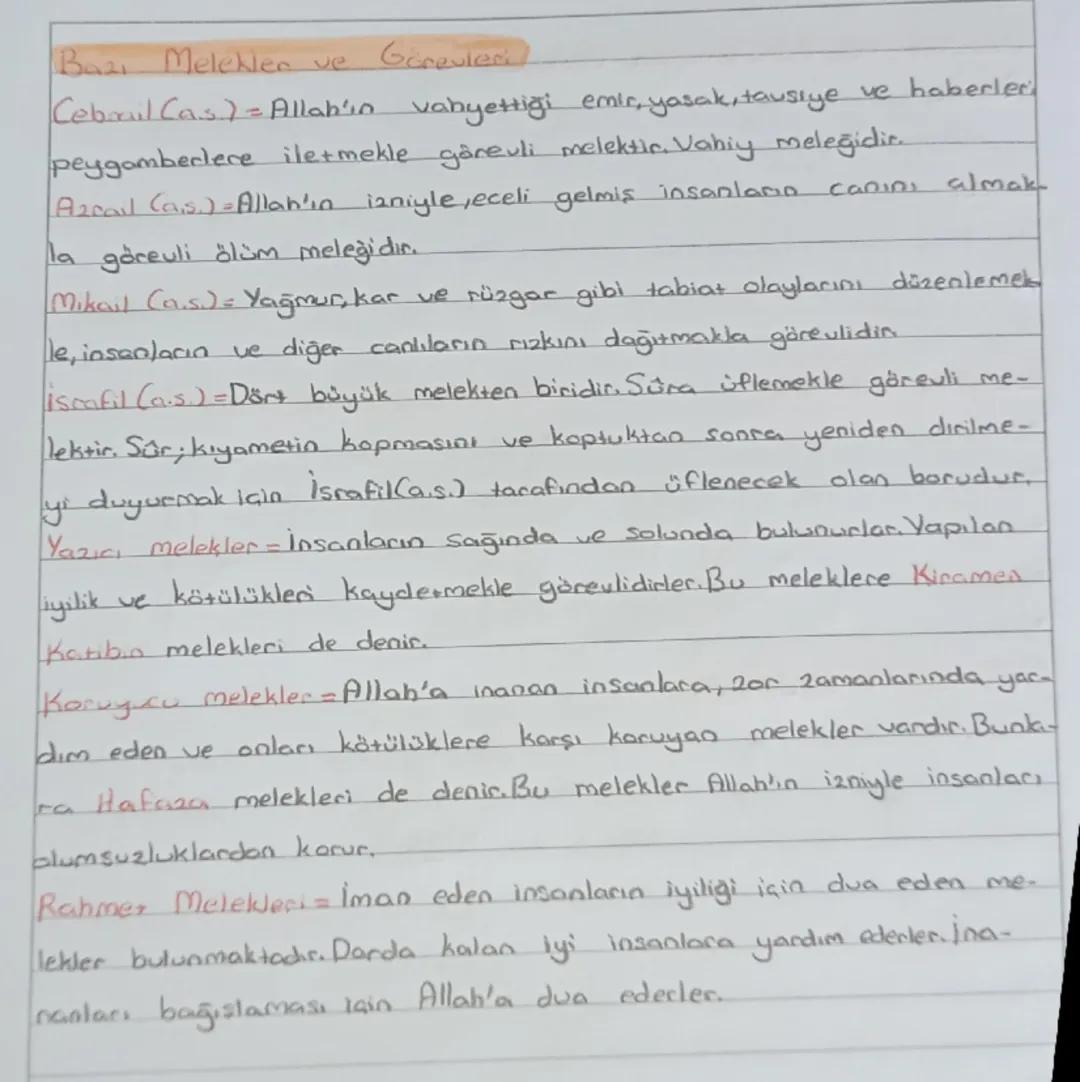 Bazı Melekler ve Görevleri
Cebrail (a.s.) = Allah'ın vahyettiği emir, yasak, tavsiye ve haberleri
peygamberlere iletmekle görevli melektir. Vahiy meleğidir.
Azrail (a.s.) = Allah'ın izniyle, eceli gelmiş insanların canını almak-
la görevli ölüm meleğidir.
Mikail (a.s.) = Yağmur, kar ve rüzgar gibi tabiat olaylarını düzenlemek
le, insanların ve diğer canlıların rızkını dağıtmakla görevlidir.
İsrafil (a.s.) = Dört büyük melekten biridir. Sûra üflemekle görevli me-
lektir. Sûr; kıyametin kopmasını ve koptuktan sonra yeniden dirilme-
yi duyurmak için İsrafil (a.s.) tarafından üflenecek olan borudur.
Yazıcı melekler = İnsanların sağında ve solunda bulunurlar. Yapılan
iyilik ve kötülükleri kaydetmekle görevlidirler. Bu meleklere Kiramen
Katibin melekleri de denir.
Koruyucu melekler = Allah'a inanan insanlara, zor zamanlarında yar-
dım eden ve onları kötülüklere karşı koruyan melekler vardır. Bunla-
ra Hafaza melekleri de denir. Bu melekler Allah'ın izniyle insanları
olumsuzluklardan korur.
Rahmet Melekleri = İman eden insanların iyiliği için dua eden me-
lekler bulunmaktadır. Darda kalan iyi insanlara yardım ederler. İna-
nanları bağışlaması için Allah'a dua ederler.